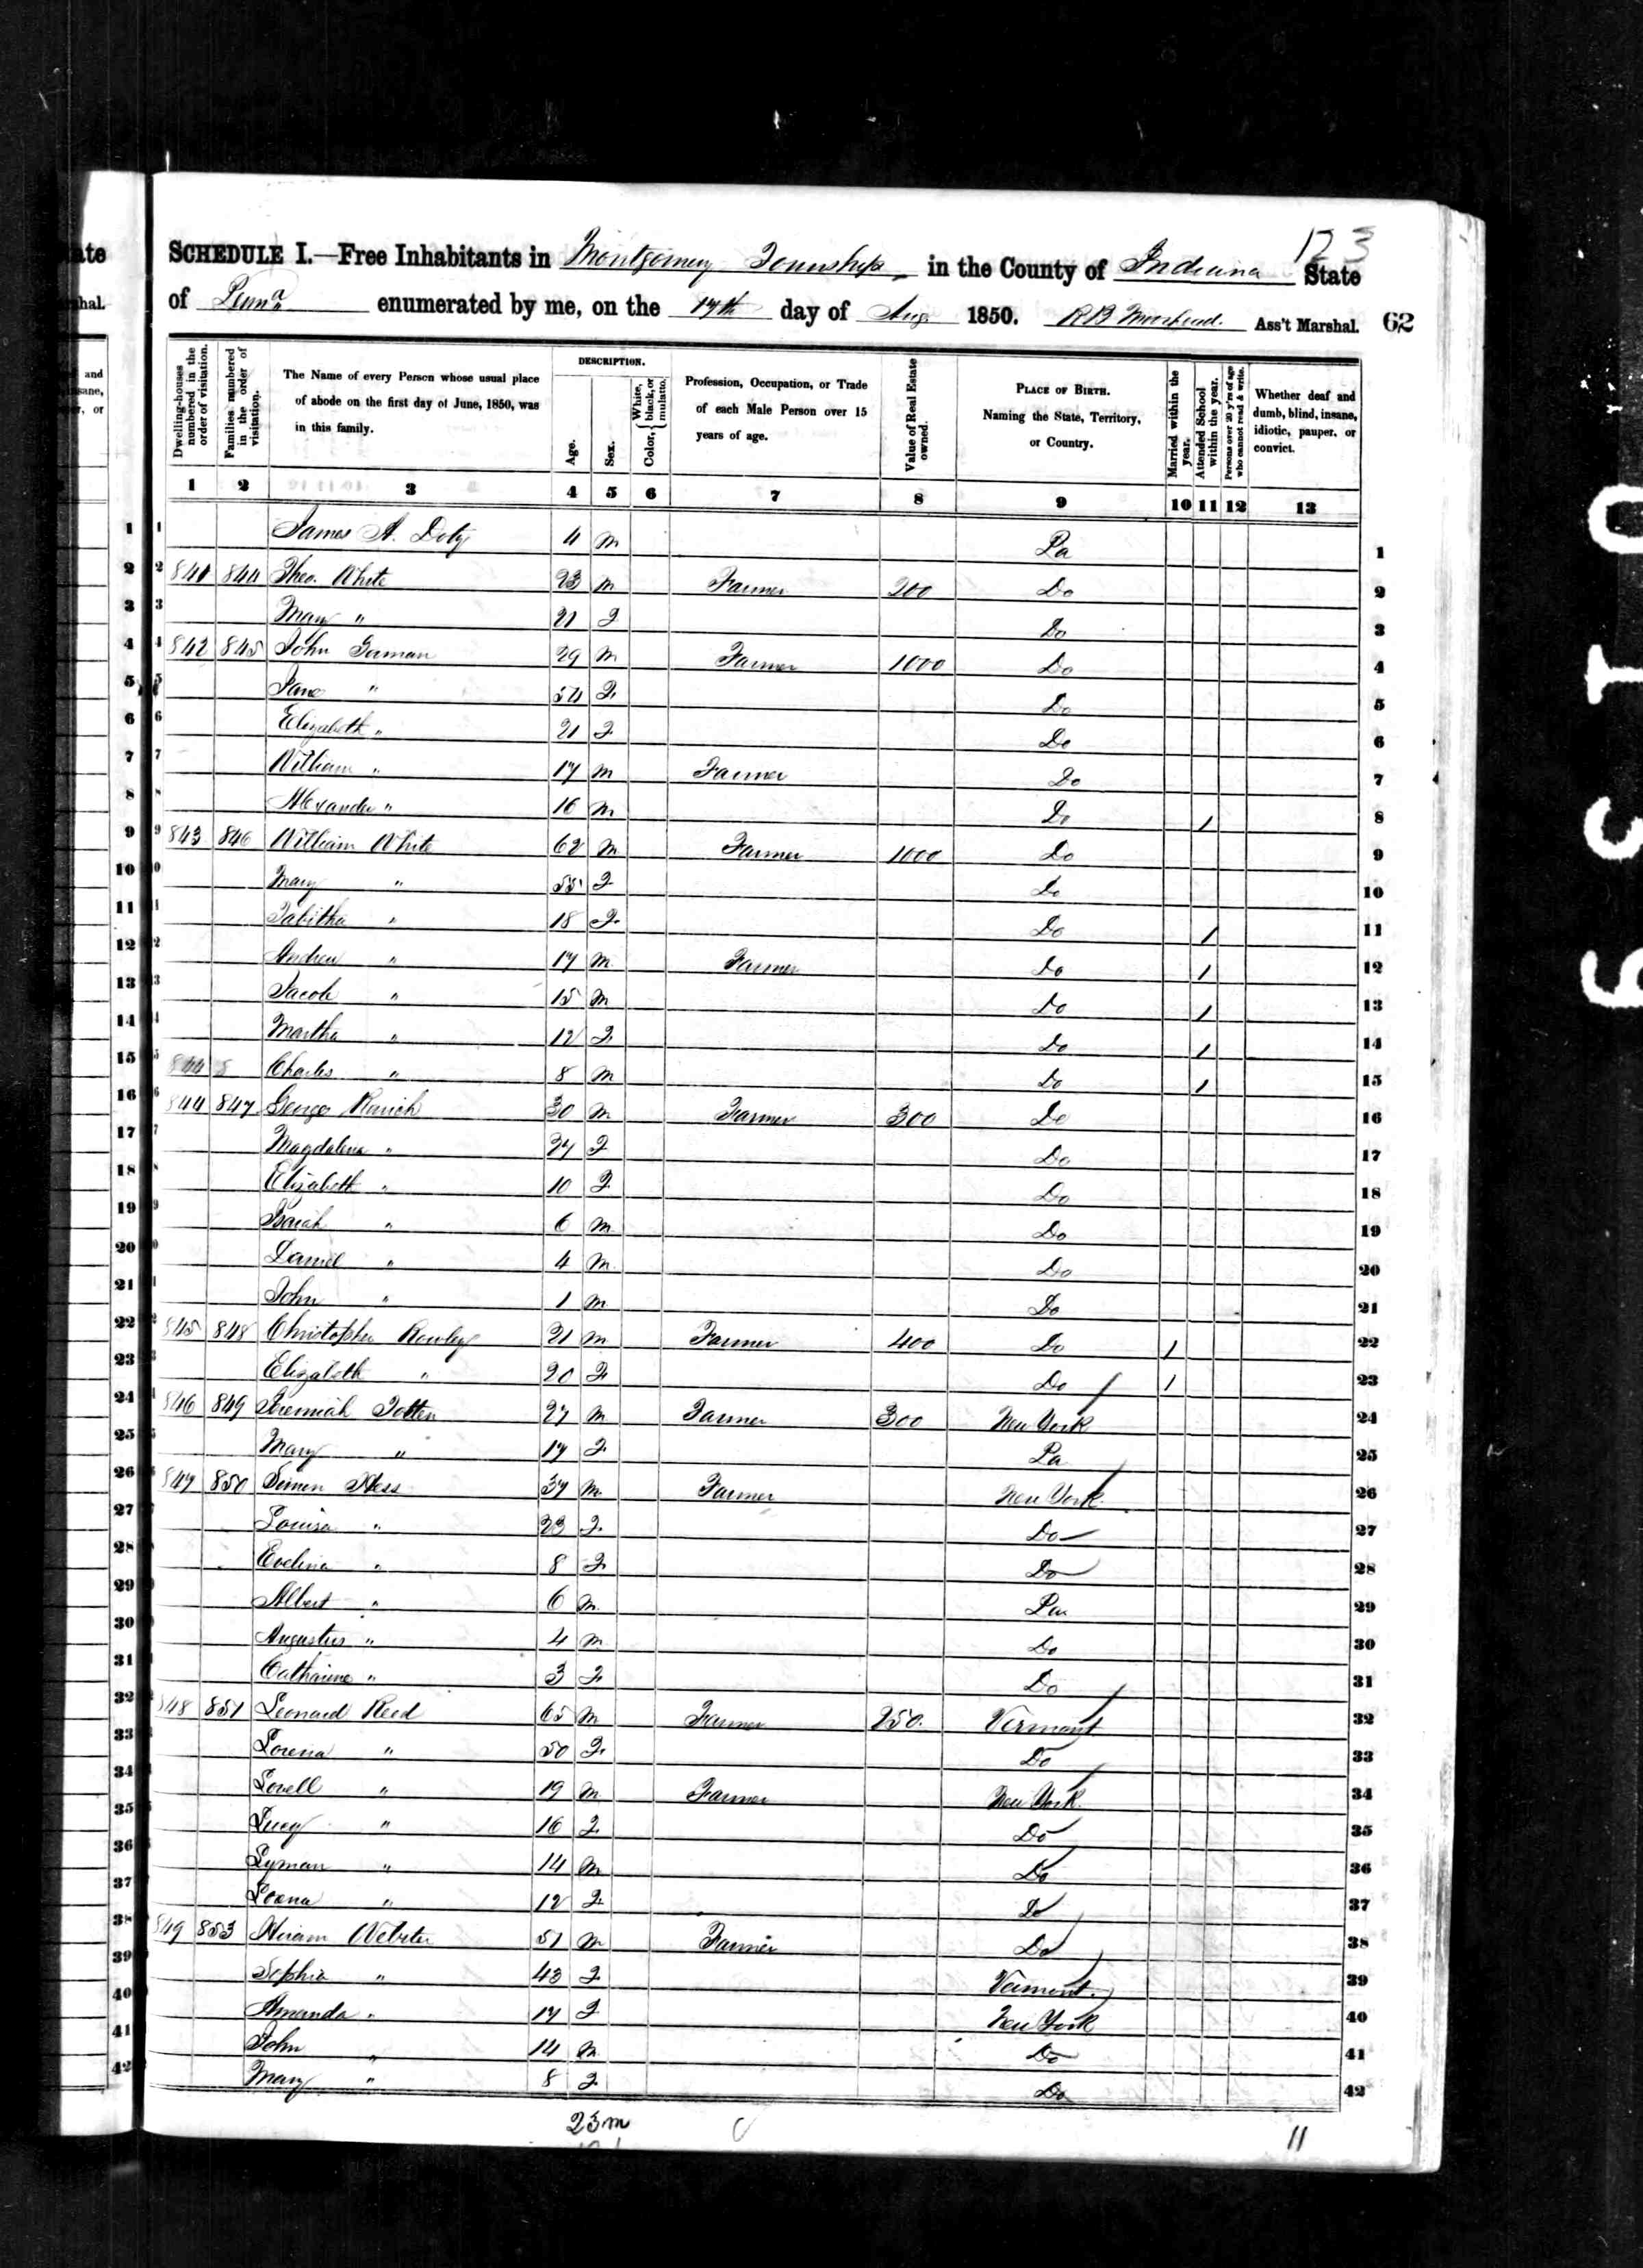 123
SCHEDULE I.—Free Inhabitants in Montgomery Township in the County of Indiana State
of Penna enumerated by me, on the 17th day of Aug. 1850. R B Moorhead. Ass't Marshal. 62
Dwelling-houses numbered in the order of visitation.
Families numbered in the order of visitation.
The Name of every Person whose usual place of abode on the first day of June, 1850, was in this family.
DESCRIPTION.
Age.
Sex.
Color, { White, black, or mulatto.
Profession, Occupation, or Trade of each Male Person over 15 years of age.
Value of Real Estate owned.
PLACE OF BIRTH. Naming the State, Territory, or Country.
Married within the year.
Attended School within the year.
Persons over 20 y'rs of age who cannot read & write.
Whether deaf and dumb, blind, insane, idiotic, pauper, or convict.
1 2 3 4 5 6 7 8 9 10 11 12 13
1 James A. Doty 4 M Pa 1
2 841 844 Theo. White 23 M Farmer 200 Do 2
3 Mary " 21 F Do 3
4 842 845 John Gorman 29 M Farmer 1000 Do 4
5 Jane " 54 F Do 5
6 Elizabeth " 21 F Do 6
7 William " 17 M Farmer Do 7
8 Alexander " 16 M Do 1 8
9 843 846 William White 62 M Farmer 1000 Do 9
10 Mary " 55 F Do 10
11 Tabitha " 18 F Do 1 11
12 Andrew " 17 M Farmer Do 1 12
13 Jacob " 15 M Do 1 13
14 Martha " 12 F Do 1 14
15 Charles " 8 M Do 1 15
16 844 847 George Rarich 30 M Farmer 300 Do 16
17 Magdalena " 27 F Do 17
18 Elizabeth " 10 F Do 18
19 Isaiah " 6 M Do 19
20 Daniel " 4 M Do 20
21 John " 1 M Do 21
22 845 848 Christopher Rowley 21 M Farmer 400 Do 1 22
23 Elizabeth " 20 F Do 1 23
24 846 849 Jeremiah Totten 27 M Farmer 300 New York 24
25 Mary " 17 F Pa 25
26 847 850 Simon Hess 37 M Farmer New York 26
27 Louisa " 23 F Do 27
28 Evelina " 8 F Do 28
29 Albert " 6 M Pa 29
30 Augustus " 4 M Do 30
31 Catharine " 3 F Do 31
32 848 851 Leonard Reed 65 M Farmer 250. Vermont 32
33 Lorena " 50 F Do 33
34 Lovell " 19 M Farmer New York 34
35 Lucy " 16 F Do 35
36 Lyman " 14 M Do 36
37 Lorena " 12 F Do 37
38 849 853 Hiram Webster 51 M Farmer Do 38
39 Sophia " 43 F Vermont. 39
40 Amanda " 17 F New York 40
41 John " 14 M Do 41
42 Mary " 8 F Do 42
23 m 11